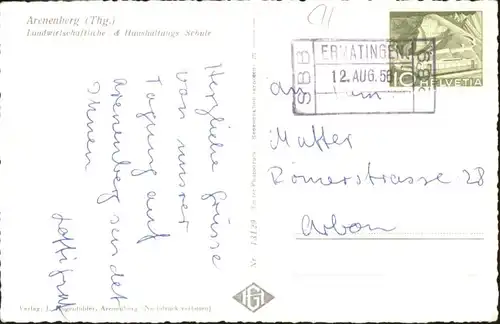 Arenenberg (Thg.)
Landwirtschaftliche & Haushaltungs Schule
SBB
ERMATINGEN
12. AUG. 56
SBB
10 HELVETIA
An Fam.
Mutter
Römerstrasse 28
Arbon
Herzliche Grüsse
von unsrer
Tagung auf
Arenenberg sendet
Ihnen
Nr. 13129
Verlag: J. Arenenberg. Nachdruck verboten